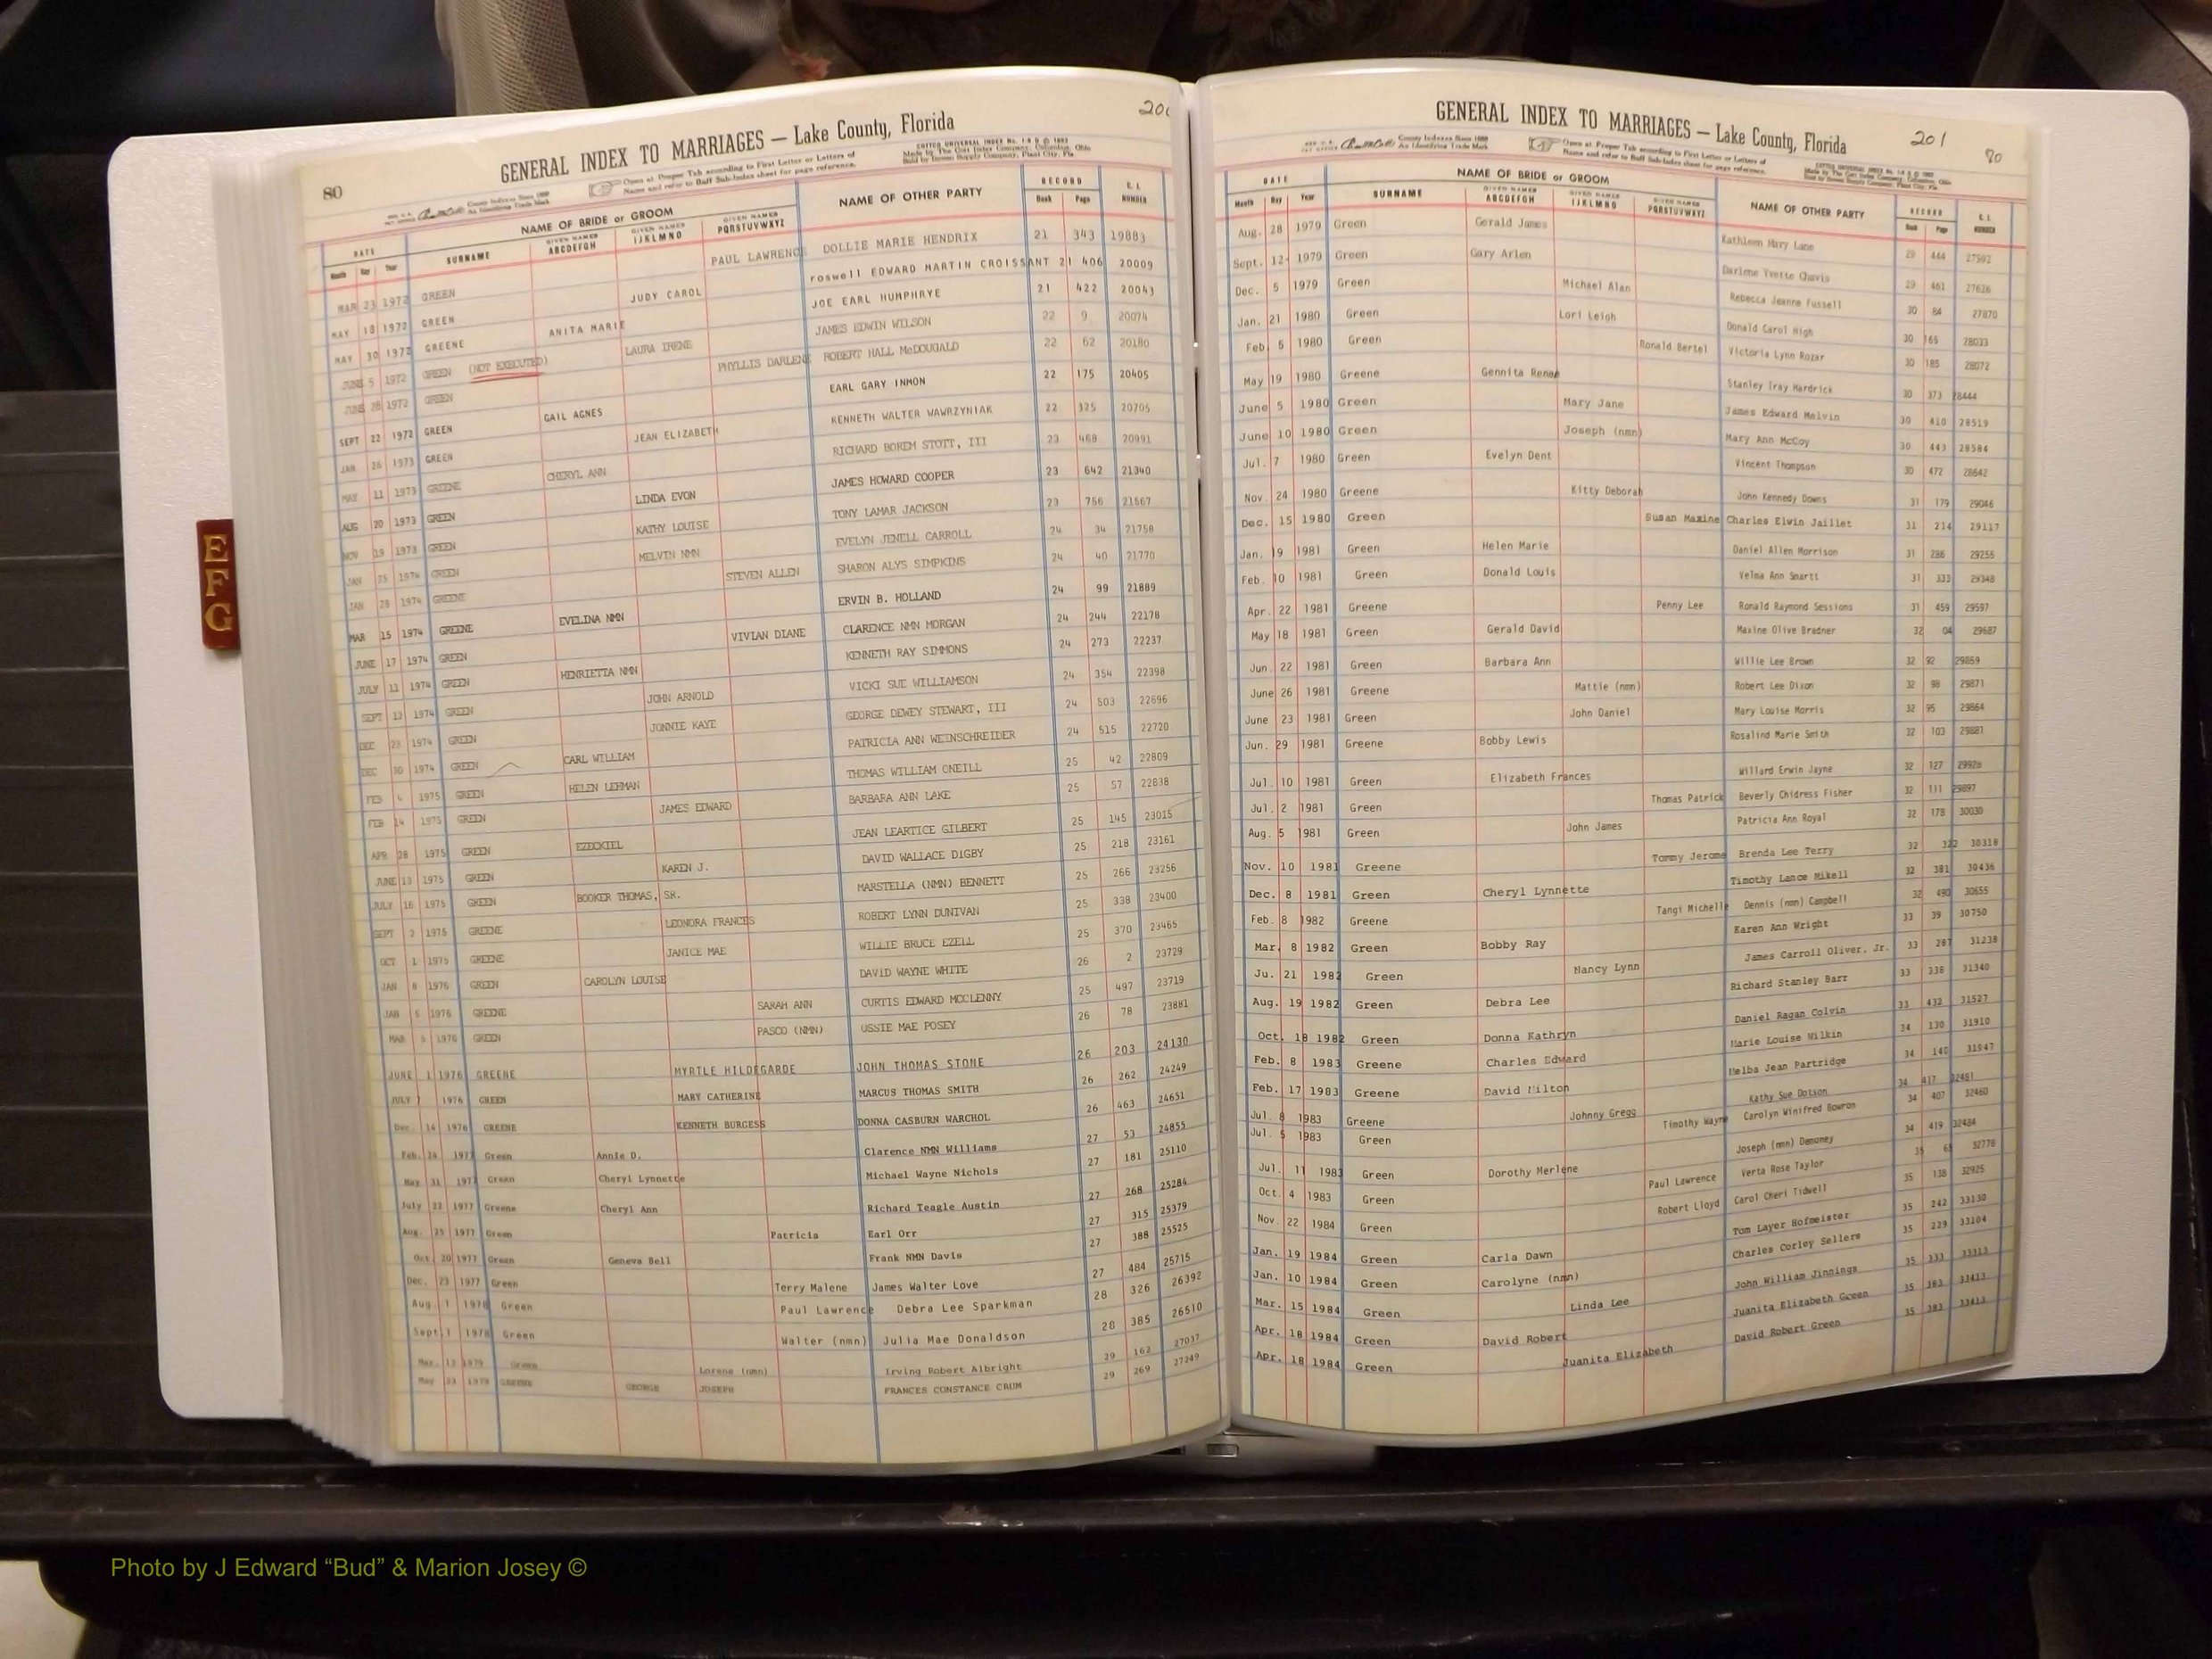 80
200
GENERAL INDEX TO MARRIAGES — Lake County, Florida
County Indexes Since 1888
An Identifying Trade Mark
Open at Proper Tab according to First Letter or Letters of
Name and refer to Buff Sub-Index sheet for page reference.
COTTCO UNIVERSAL INDEX
Made by The Cott Index Company, Columbus, Ohio
Sold by Brown Supply Company, Plant City, Fla.
DATE NAME OF BRIDE or GROOM NAME OF OTHER PARTY RECORD
Month Day Year SURNAME GIVEN NAMES ABCDEFGH GIVEN NAMES IJKLMNO GIVEN NAMES PQRSTUVWXYZ Book Page NUMBER
MAR 23 1972 GREEN PAUL LAWRENCE DOLLIE MARIE HENDRIX 21 343 19883
MAY 18 1972 GREEN JUDY CAROL roswell EDWARD MARTIN CROISSANT 21 406 20009
MAY 30 1972 GREENE ANITA MARIE JOE EARL HUMPHRYE 21 422 20043
JUNE 5 1972 GREEN (NOT EXECUTED) LAURA IRENE JAMES EDWIN WILSON 22 9 20074
JUNE 28 1972 GREEN PHYLLIS DARLENE ROBERT HALL McDOUGALD 22 62 20180
SEPT 22 1972 GREEN GAIL AGNES EARL GARY INMON 22 175 20405
JAN 26 1973 GREEN JEAN ELIZABETH KENNETH WALTER WAWRZYNIAK 22 325 20705
MAY 11 1973 GREENE CHERYL ANN RICHARD BOREM STOTT, III 23 468 20991
AUG 20 1973 GREEN LINDA EVON JAMES HOWARD COOPER 23 642 21340
NOV 19 1973 GREEN KATHY LOUISE TONY LAMAR JACKSON 23 756 21567
JAN 25 1974 GREEN MELVIN NMN EVELYN JENELL CARROLL 24 34 21758
JAN 28 1974 GREENE STEVEN ALLEN SHARON ALYS SIMPKINS 24 40 21770
MAR 15 1974 GREENE EVELINA NMN ERVIN B. HOLLAND 24 99 21889
JUNE 17 1974 GREEN VIVIAN DIANE CLARENCE NMN MORGAN 24 244 22178
JULY 11 1974 GREEN HENRIETTA NMN KENNETH RAY SIMMONS 24 273 22237
SEPT 12 1974 GREEN JOHN ARNOLD VICKI SUE WILLIAMSON 24 354 22398
DEC 23 1974 GREEN JONNIE KAYE GEORGE DEWEY STEWART, III 24 503 22696
DEC 30 1974 GREEN CARL WILLIAM PATRICIA ANN WEINSCHREIDER 24 515 22720
FEB 4 1975 GREEN HELEN LEHMAN THOMAS WILLIAM ONEILL 25 42 22809
FEB 14 1975 GREEN JAMES EDWARD BARBARA ANN LAKE 25 57 22838
APR 28 1975 GREEN EZECKIEL JEAN LEARTICE GILBERT 25 145 23015
JUNE 13 1975 GREEN KAREN J. DAVID WALLACE DIGBY 25 218 23161
JULY 16 1975 GREEN BOOKER THOMAS, SR. MARSTELLA (NMN) BENNETT 25 266 23256
SEPT 2 1975 GREENE LEONORA FRANCES ROBERT LYNN DUNIVAN 25 338 23400
OCT 1 1975 GREENE JANICE MAE WILLIE BRUCE EZELL 25 370 23465
JAN 8 1976 GREEN CAROLYN LOUISE DAVID WAYNE WHITE 26 2 23729
JAN 5 1976 GREENE SARAH ANN CURTIS EDWARD MCCLENNY 25 497 23719
MAR 5 1976 GREEN PASCO (NMN) OSSIE MAE POSEY 26 78 23881
JUNE 1 1976 GREENE MYRTLE HILDEGARDE JOHN THOMAS STONE 26 203 24130
JULY 1976 GREEN MARY CATHERINE MARCUS THOMAS SMITH 26 262 24249
Dec. 14 1976 GREENE KENNETH BURGESS DONNA CASBURN WARCHOL 26 463 24651
Feb. 24 1977 Green Annie D. Clarence NMN Williams 27 53 24855
May 31 1977 Green Cheryl Lynnette Michael Wayne Nichols 27 181 25110
July 22 1977 Greene Cheryl Ann Richard Teagle Austin 27 268 25284
Aug. 25 1977 Green Patricia Earl Orr 27 315 25379
Oct. 20 1977 Green Geneva Bell Frank NMN Davis 27 388 25525
Dec. 23 1977 Green Terry Malene James Walter Love 27 484 25715
Aug. 1 1978 Green Paul Lawrence Debra Lee Sparkman 28 326 26392
Sept. 1 1978 Green Walter (nmn) Julia Mae Donaldson 28 385 26510
Mar. 12 1979 Green Lorene (nmn) Irving Robert Albright 29 162 27037
May 23 1979 GREENE GEORGE JOSEPH FRANCES CONSTANCE CRUM 29 269 27249
E
F
G
GENERAL INDEX TO MARRIAGES — Lake County, Florida
201
80
County Indexes Since 1888
An Identifying Trade Mark
Open at Proper Tab according to First Letter or Letters of
Name and refer to Buff Sub-Index sheet for page reference.
DATE NAME OF BRIDE or GROOM NAME OF OTHER PARTY RECORD
Month Day Year SURNAME GIVEN NAMES ABCDEFGH GIVEN NAMES IJKLMNO GIVEN NAMES PQRSTUVWXYZ Book Page NUMBER
Aug. 28 1979 Green Gerald James Kathleen Mary Lane 29 444 27592
Sept. 12 1979 Green Gary Arlen Darlene Yvette Chavis 29 461 27626
Dec. 5 1979 Green Michael Alan Rebecca Jeanne Fussell 30 84 27870
Jan. 21 1980 Green Lori Leigh Donald Carol High 30 165 28033
Feb 5 1980 Green Ronald Bertel Victoria Lynn Rozar 30 185 28072
May 19 1980 Greene Gennita Renee Stanley Iray Hardrick 30 373 28444
June 5 1980 Green Mary Jane James Edward Melvin 30 410 28519
June 10 1980 Green Joseph (nmn) Mary Ann McCoy 30 443 28584
Jul. 7 1980 Green Evelyn Dent Vincent Thompson 30 472 28642
Nov. 24 1980 Greene Kitty Deborah John Kennedy Downs 31 179 29046
Dec. 15 1980 Green Susan Maxine Charles Elwin Jaillet 31 214 29117
Jan. 9 1981 Green Helen Marie Daniel Allen Morrison 31 286 29255
Feb. 10 1981 Green Donald Louis Velma Ann Smartt 31 333 29348
Apr. 22 1981 Greene Penny Lee Ronald Raymond Sessions 31 459 29597
May 18 1981 Green Gerald David Maxine Olive Bradner 32 04 29687
Jun. 22 1981 Green Barbara Ann Willie Lee Brown 32 92 29859
June 26 1981 Greene Mattie (nmn) Robert Lee Dixon 32 98 29871
June 23 1981 Green John Daniel Mary Louise Morris 32 95 29864
Jun. 29 1981 Greene Bobby Lewis Rosalind Marie Smith 32 103 29881
Jul. 10 1981 Green Elizabeth Frances Willard Erwin Jayne 32 127 29928
Jul. 2 1981 Green Thomas Patrick Beverly Chidress Fisher 32 111 29897
Aug. 5 1981 Green John James Patricia Ann Royal 32 178 30030
Nov. 10 1981 Greene Tommy Jerome Brenda Lee Terry 32 322 30318
Dec. 8 1981 Green Cheryl Lynnette Timothy Lance Mikell 32 381 30436
Feb. 8 1982 Greene Tangi Michelle Dennis (nmn) Campbell 32 490 30655
Mar. 8 1982 Green Bobby Ray Karen Ann Wright 33 39 30750
Ju. 21 1982 Green Nancy Lynn James Carroll Oliver, Jr. 33 287 31238
Aug. 19 1982 Green Debra Lee Richard Stanley Barr 33 338 31340
Oct. 18 1982 Green Donna Kathryn Daniel Ragan Colvin 33 432 31527
Feb. 8 1983 Greene Charles Edward Marie Louise Wilkin 34 130 31910
Feb. 17 1983 Greene David Milton Melba Jean Partridge 34 140 31947
Jul. 8 1983 Greene Johnny Gregg Kathy Sue Dotson 34 417 32481
Jul. 5 1983 Green Timothy Wayne Carolyn Winifred Bowron 34 407 32460
Jul. 11 1983 Green Dorothy Merlene Joseph (nmn) Demoney 34 419 32484
Oct. 4 1983 Green Paul Lawrence Verta Rose Taylor 35 65 32778
Nov. 22 1984 Green Robert Lloyd Carol Cheri Tidwell 35 138 32925
Jan. 19 1984 Green Carla Dawn Tom Layer Hofmeister 35 242 33130
Jan. 10 1984 Green Carolyne (nmn) Charles Corley Sellers 35 229 33104
Mar. 15 1984 Green Linda Lee John William Jinnings 35 333 33313
Apr. 18 1984 Green David Robert Juanita Elizabeth Green 35 383 33413
Apr. 18 1984 Green Juanita Elizabeth David Robert Green 35 383 33413
Photo by J Edward “Bud” & Marion Josey ©